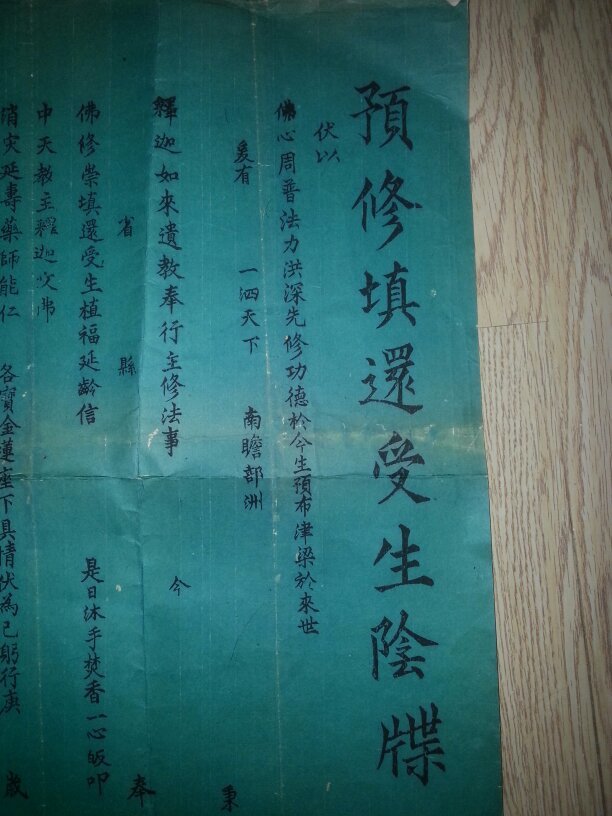 預修填還受生陰牒
伏以
佛心周普法力洪深先修功德於今生預布津梁於來世
爰有 一泗天下 南瞻部洲 秉
釋迦如來遺教奉行主修法事 今
省 縣 奉
佛修崇填還受生植福延齡信 是日沐手焚香一心皈叩
中天教主釋迦文佛
消灾延壽藥師能仁 各寶金蓮座下具情伏為己躬行庚 歲